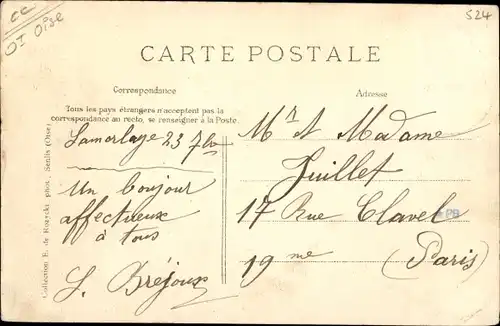 CC
OI Oise
524
CARTE POSTALE
Correspondance
Adresse
Tous les pays étrangers n'acceptent pas la
correspondance au recto, se renseigner à la Poste.
Lamorlaye 23 7bre
Un bonjour
affectueux
à tous
S. Bréjoux
Mr et Madame
Juillet
17 Rue Clavel
19me (Paris)
Collection E. de Rozycki phot. Senlis (Oise)